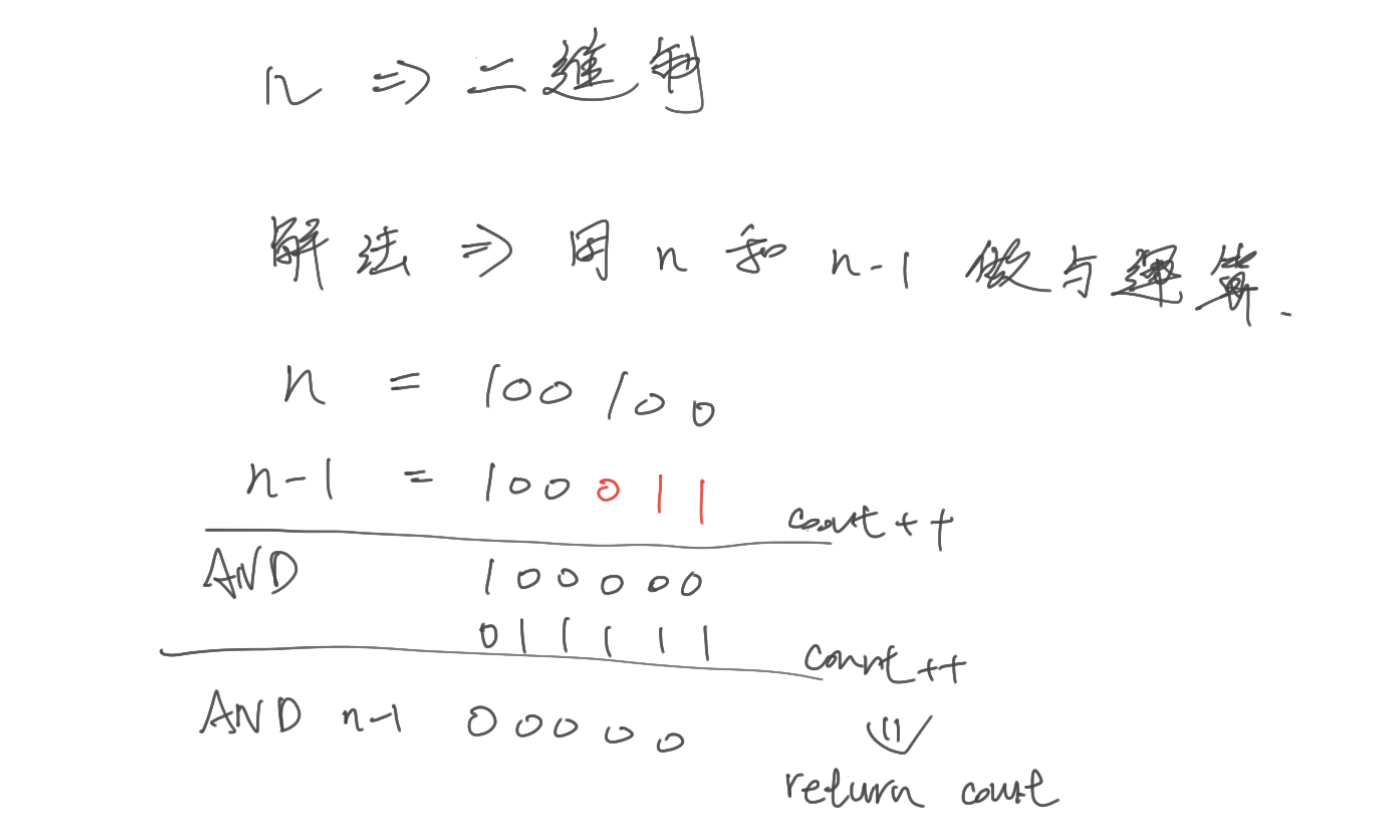 n => 二進制
解法 => 用 n 和 n-1 做与運算.
n = 100100
n-1 = 100011
count++
AND 100000
011111
count++
AND n-1 00000
return count